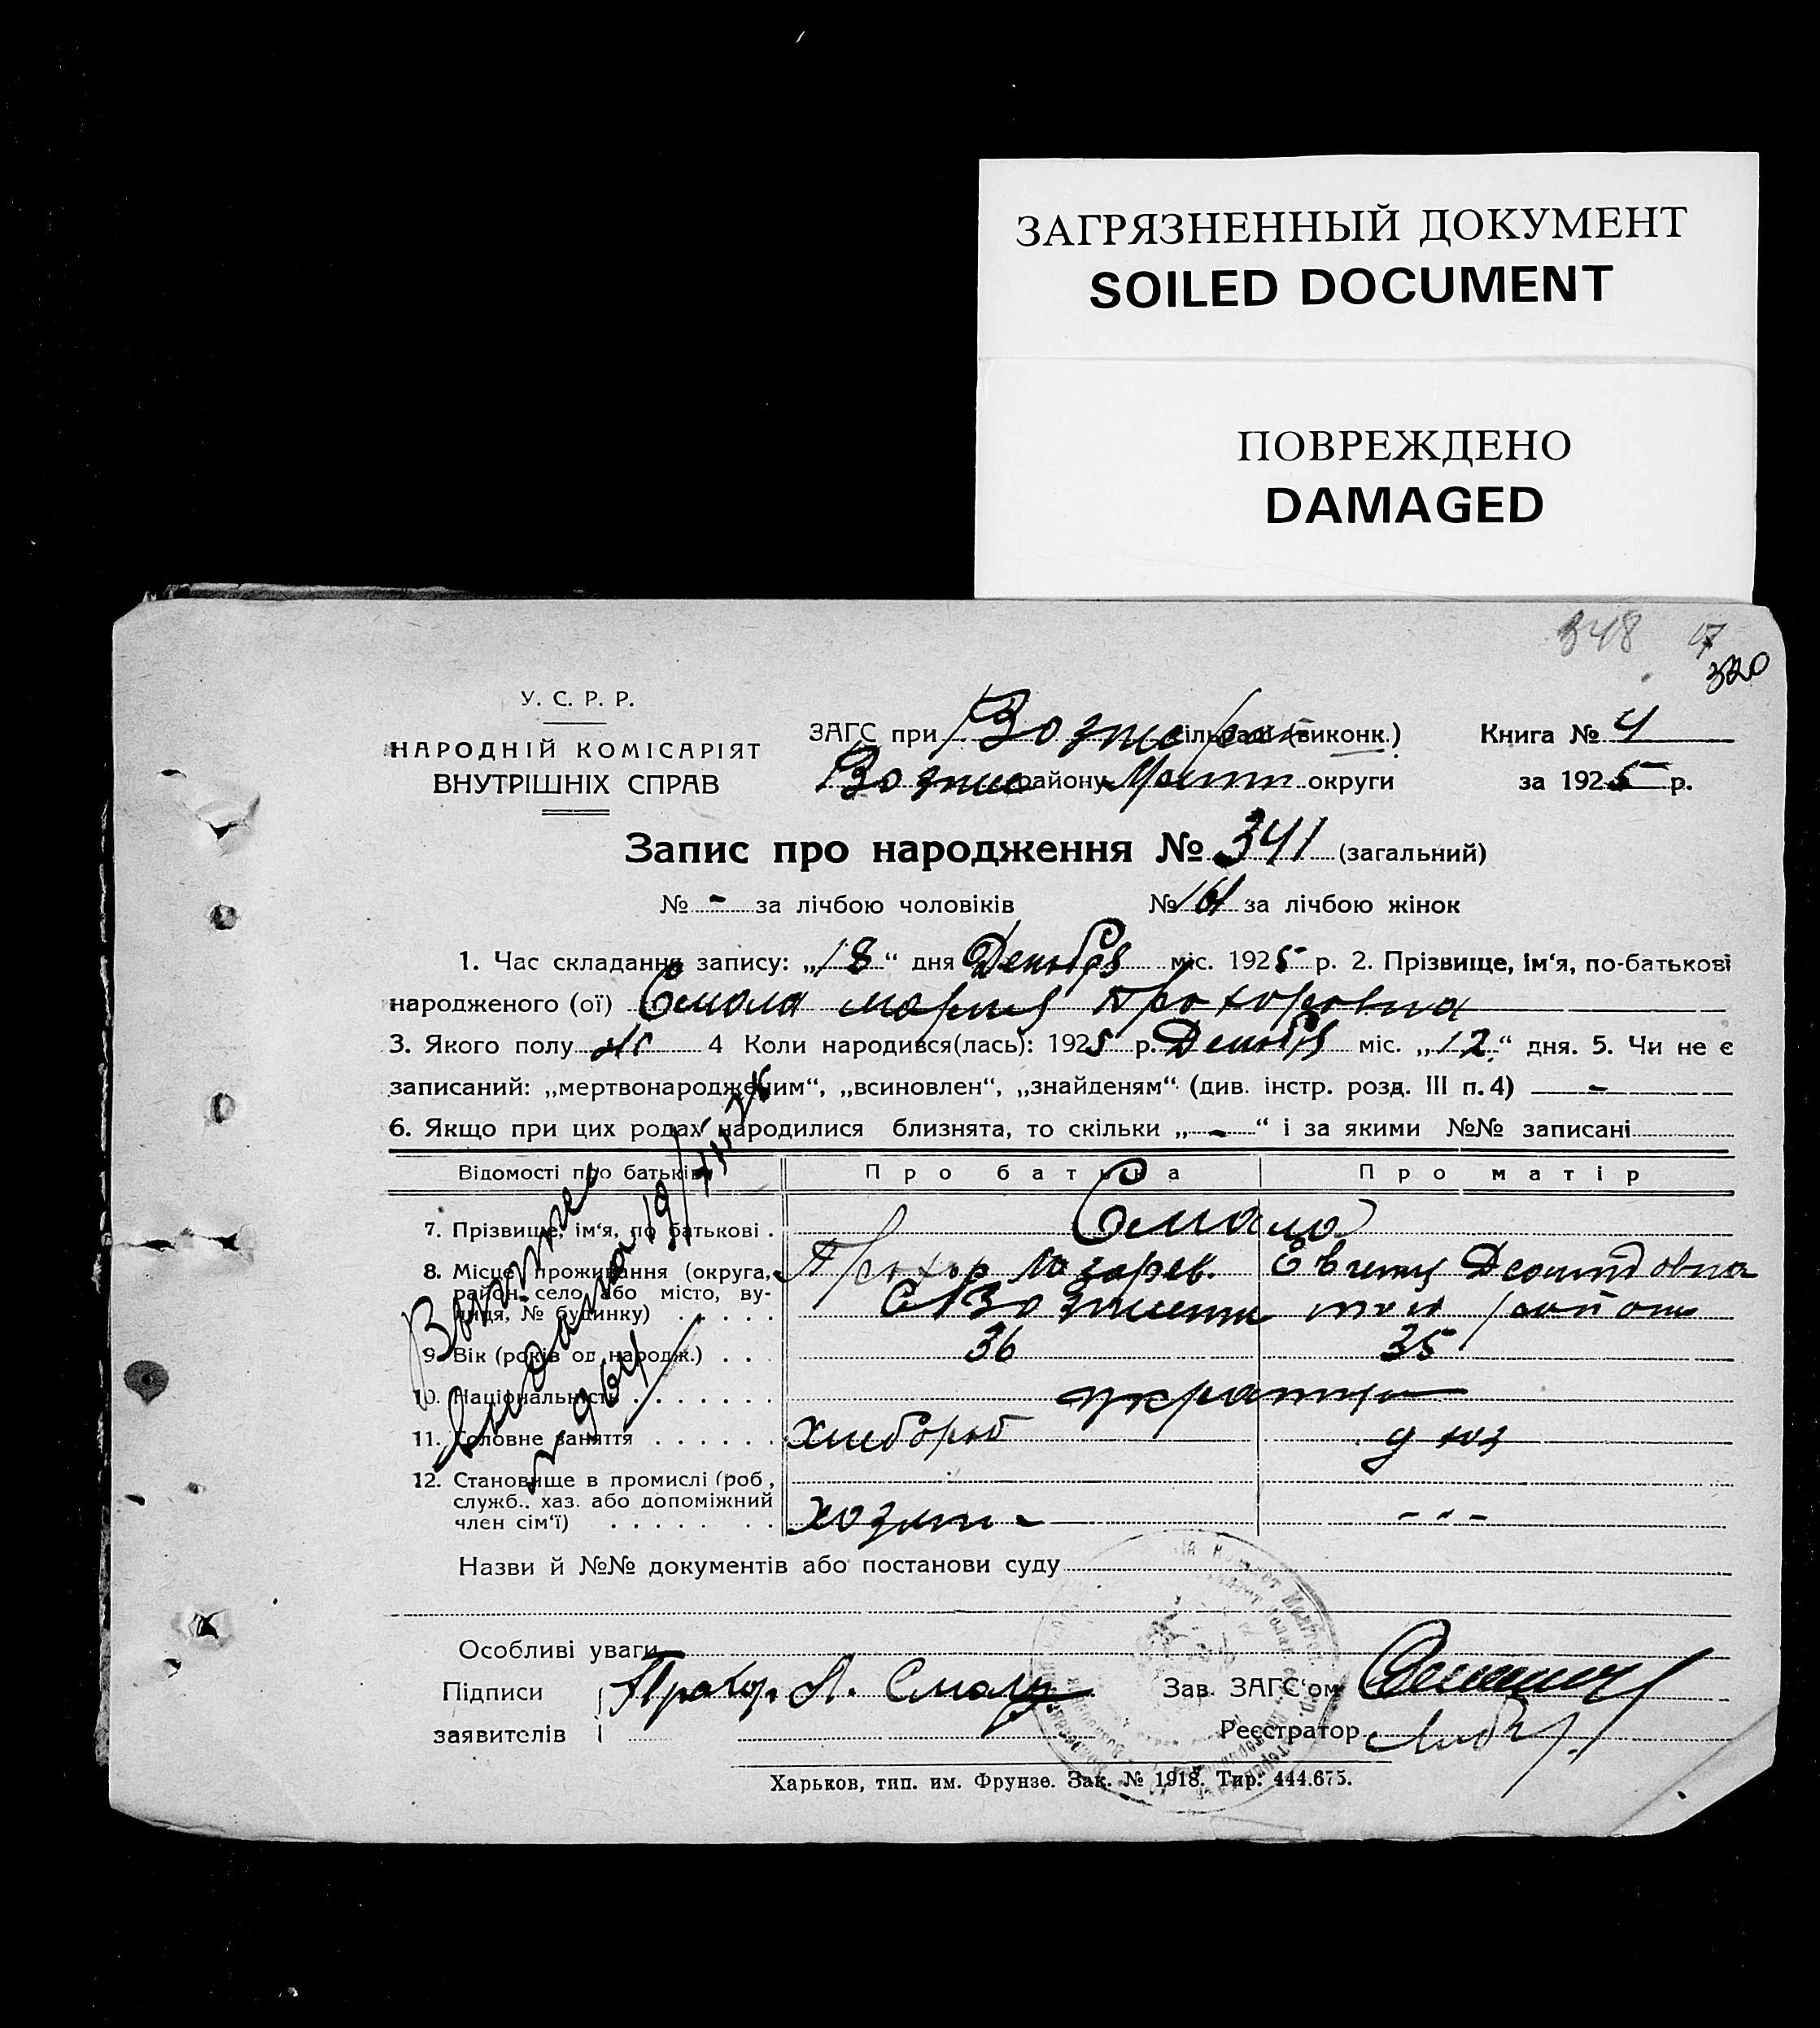 ЗАГРЯЗНЕННЫЙ ДОКУМЕНТ
SOILED DOCUMENT
ПОВРЕЖДЕНО
DAMAGED
348
320
У. С. Р. Р.
НАРОДНІЙ КОМІСАРІЯТ
ВНУТРІШНІХ СПРАВ
ЗАГС при сільраді (виконк.) Книга № 4
району округи за 1925 р.
Запис про народження № 341 (загальний)
№ - за лічбою чоловіків № 161 за лічбою жінок
1. Час складання запису: „18“ дня Декабря міс. 1925 р. 2. Прізвище, ім‘я, по-батькові
народженого (ої) Смола Мария Прохоровна
3. Якого полу ж 4 Коли народився(лась): 1925 р. Декабря міс. „12“ дня. 5. Чи не є
записаний: „мертвонародженим“, „всиновлен“, „знайденям“ (див. інстр. розд. III п. 4) -
6. Якщо при цих родах народилися близнята, то скільки „-“ і за якими №№ записані
Відомості про батьків Про батька Про матір
7. Прізвище, ім‘я, по батькові . Смола
8. Місце проживання (округа, Прохор Лазарев. Евгения Демидовна
район, село або місто, ву-
лиця, № будинку) . . . . .
9. Вік (років од народж.) . . . 36 35
10. Національність . . . . . . .
11. Головне заняття . . . . . . Хлебороб
12. Становище в промислі (роб.,
служб., хаз. або допоміжний
член сім‘ї) . . . . . . . хозяин - - - -
Назви й №№ документів або постанови суду
Особливі уваги
Підписи Прохор. Л. Смола Зав. ЗАГС‘ом
заявителів Реєстратор
Харьков, тип. им. Фрунзе. Зак. № 1918. Тир. 444.675.